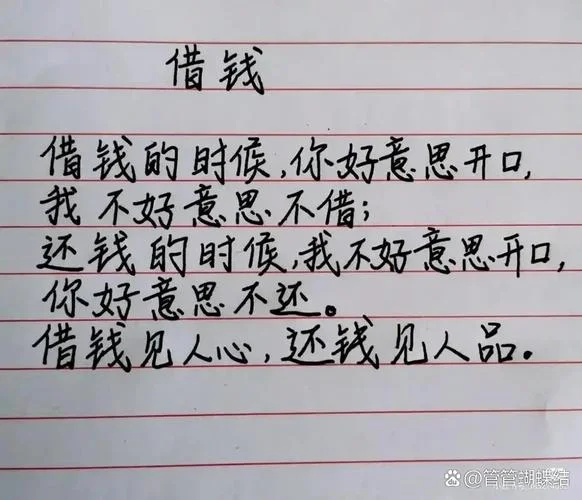 借钱
借钱的时候,你好意思开口,
我不好意思不借;
还钱的时候,我不好意思开口,
你好意思不还。
借钱见人心,还钱见人品。
管管蝴蝶结